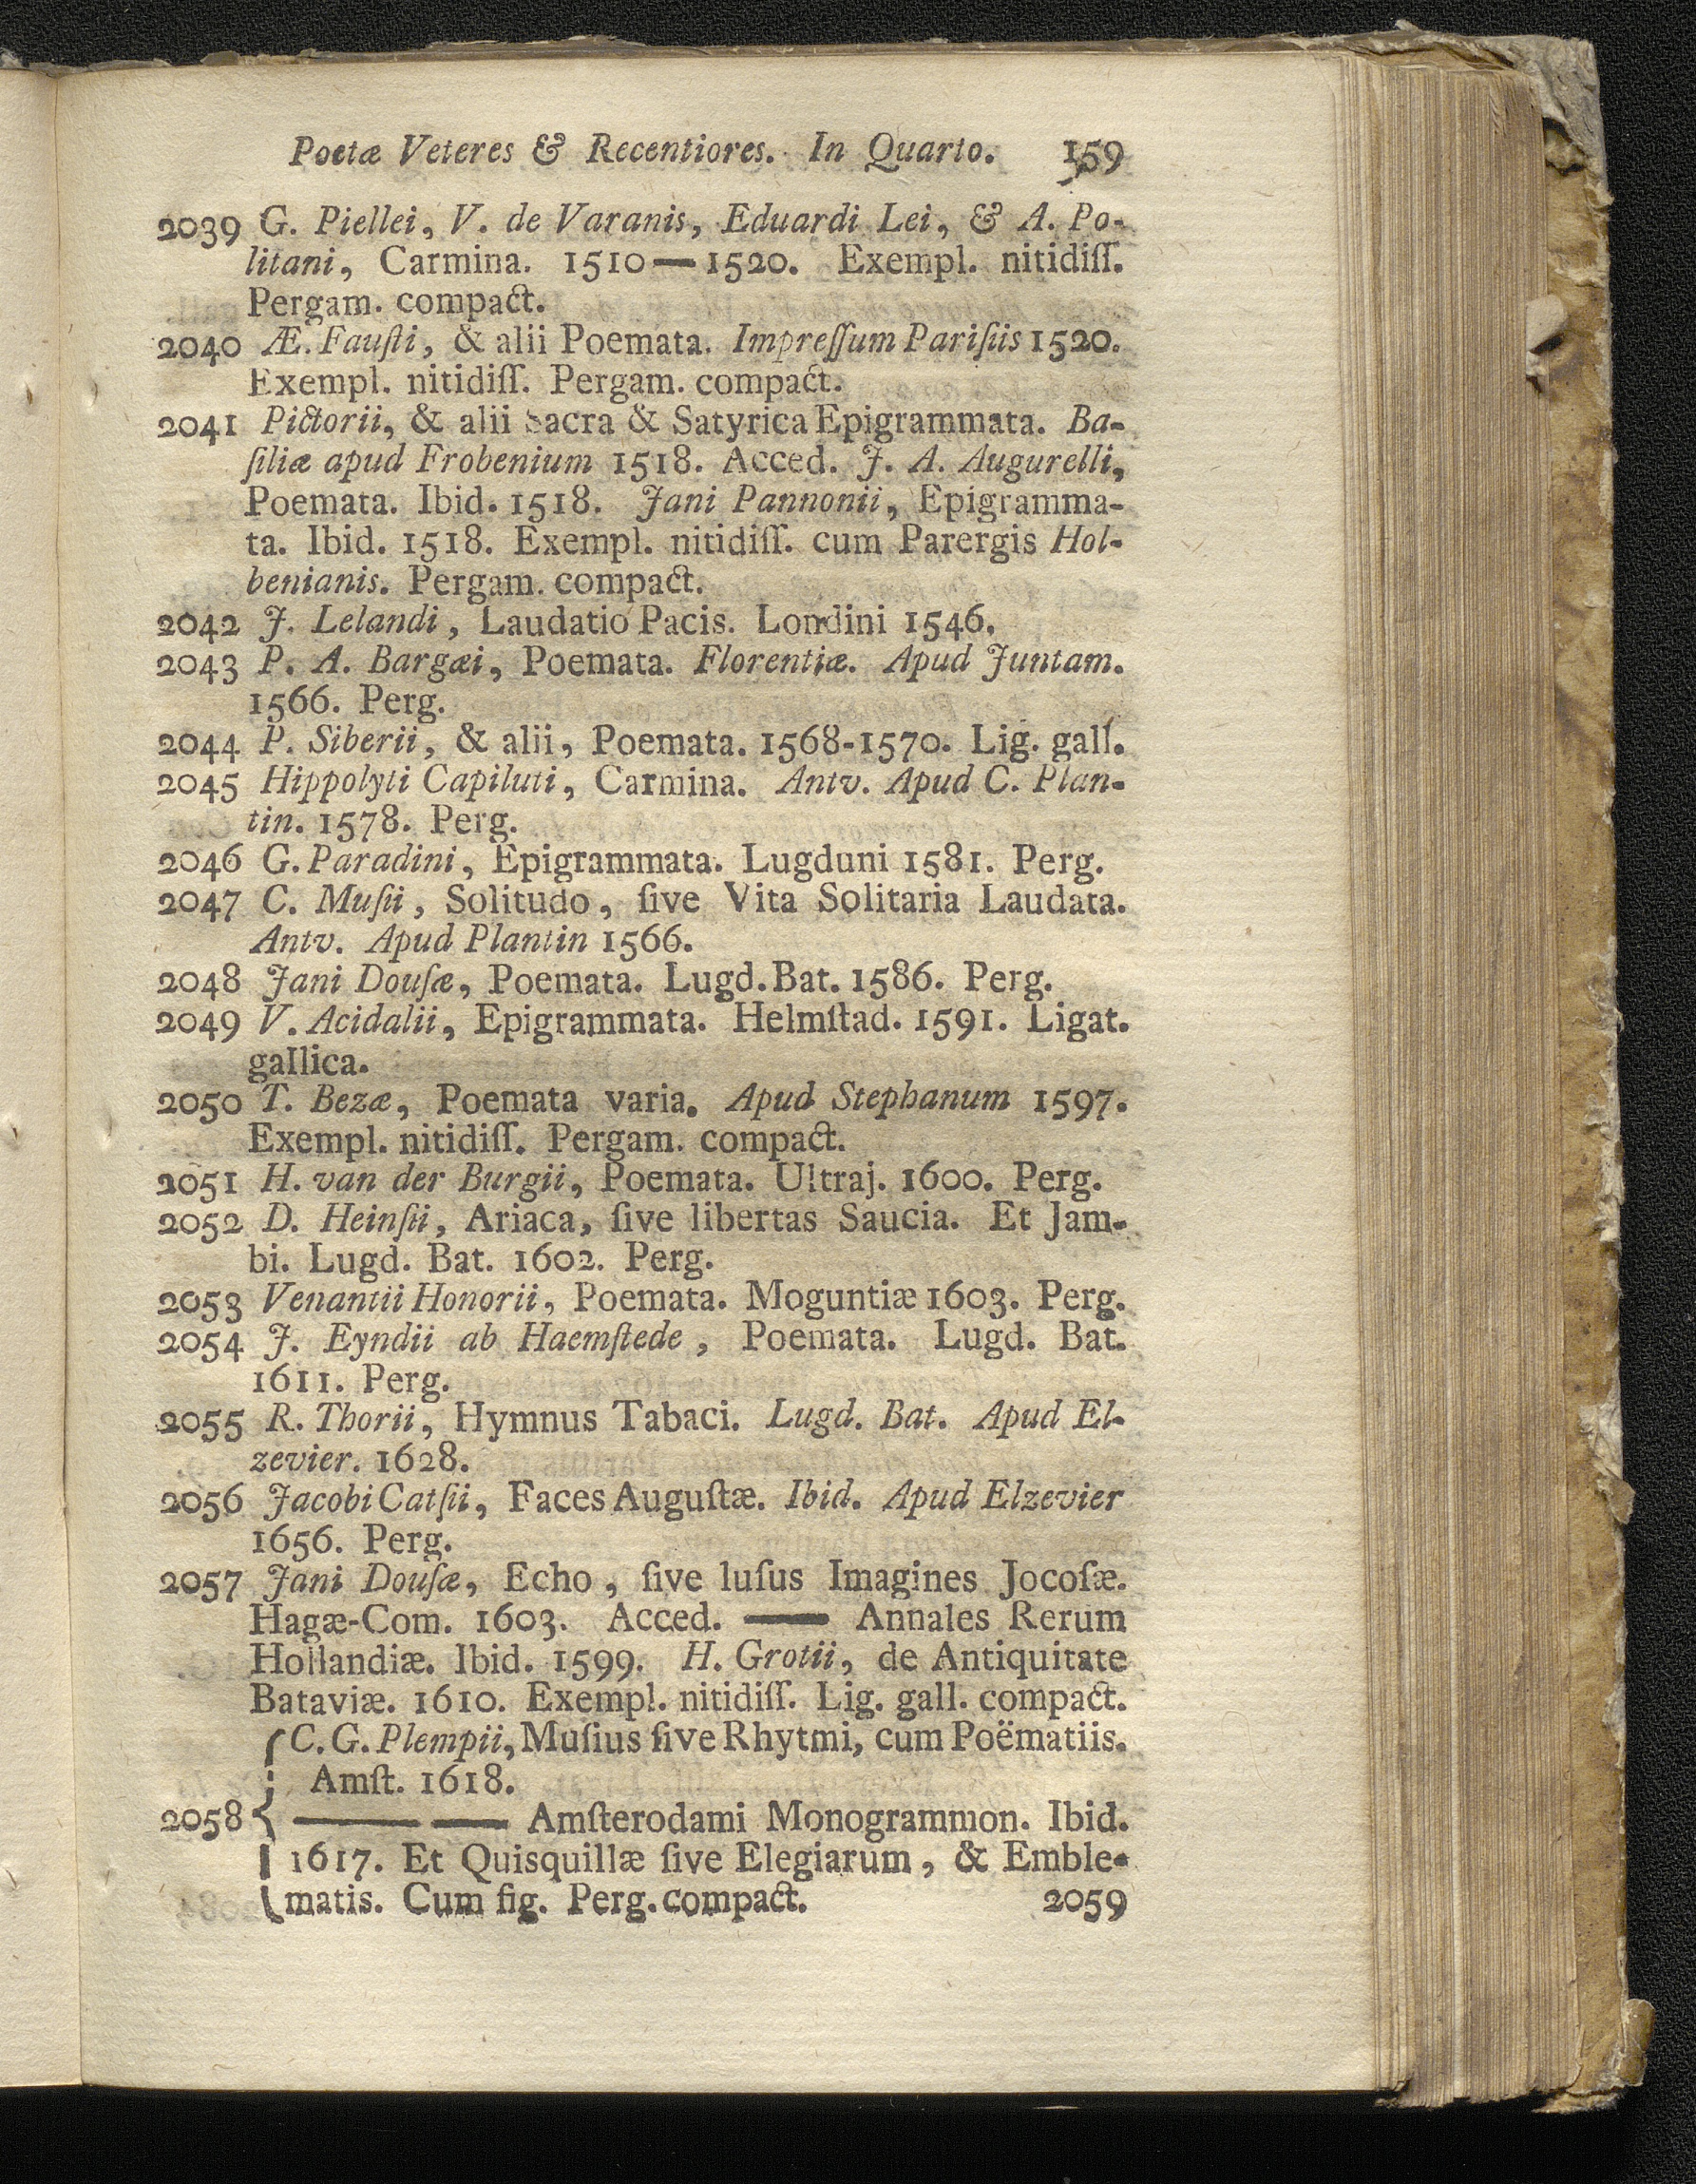 Poetæ Veteres & Recentiores. In Quarto. 159
2039 G. Piellei, V. de Varanis, Eduardi Lei, & A. Po-
litani, Carmina. 1510 — 1520. Exempl. nitidiſſ.
Pergam. compact.
2040 Æ. Fauſti, & alii Poemata. Impreſſum Pariſiis 1520.
Exempl. nitidiſſ. Pergam. compact.
2041 Pictorii, & alii Sacra & Satyrica Epigrammata. Ba-
ſiliæ apud Frobenium 1518. Acced. J. A. Augurelli,
Poemata. Ibid. 1518. Jani Pannonii, Epigramma-
ta. Ibid. 1518. Exempl. nitidiſſ. cum Parergis Hol-
benianis. Pergam. compact.
2042 J. Lelandi, Laudatio Pacis. Londini 1546.
2043 P. A. Bargæi, Poemata. Florentiæ. Apud Juntam.
1566. Perg.
2044 P. Siberii, & alii, Poemata. 1568-1570. Lig. gall.
2045 Hippolyti Capiluti, Carmina. Antv. Apud C. Plan-
tin. 1578. Perg.
2046 G. Paradini, Epigrammata. Lugduni 1581. Perg.
2047 C. Muſii, Solitudo, ſive Vita Solitaria Laudata.
Antv. Apud Plantin 1566.
2048 Jani Douſæ, Poemata. Lugd. Bat. 1586. Perg.
2049 V. Acidalii, Epigrammata. Helmſtad. 1591. Ligat.
gallica.
2050 T. Bezæ, Poemata varia. Apud Stephanum 1597.
Exempl. nitidiſſ. Pergam. compact.
2051 H. van der Burgii, Poemata. Ultraj. 1600. Perg.
2052 D. Heinſii, Ariaca, ſive libertas Saucia. Et Jam-
bi. Lugd. Bat. 1602. Perg.
2053 Venantii Honorii, Poemata. Moguntiæ 1603. Perg.
2054 J. Eyndii ab Haemſtede, Poemata. Lugd. Bat.
1611. Perg.
2055 R. Thorii, Hymnus Tabaci. Lugd. Bat. Apud El-
zevier. 1628.
2056 Jacobi Catſii, Faces Auguſtæ. Ibid. Apud Elzevier
1656. Perg.
2057 Jani Douſæ, Echo, ſive luſus Imagines Jocoſæ.
Hagæ-Com. 1603. Acced. — Annales Rerum
Hollandiæ. Ibid. 1599. H. Grotii, de Antiquitate
Bataviæ. 1610. Exempl. nitidiſſ. Lig. gall. compact.
C. G. Plempii, Muſius ſive Rhytmi, cum Poëmatiis.
Amſt. 1618.
2058 { — — Amſterodami Monogrammon. Ibid.
1617. Et Quisquillæ ſive Elegiarum, & Emble-
matis. Cum fig. Perg. compact. 2059